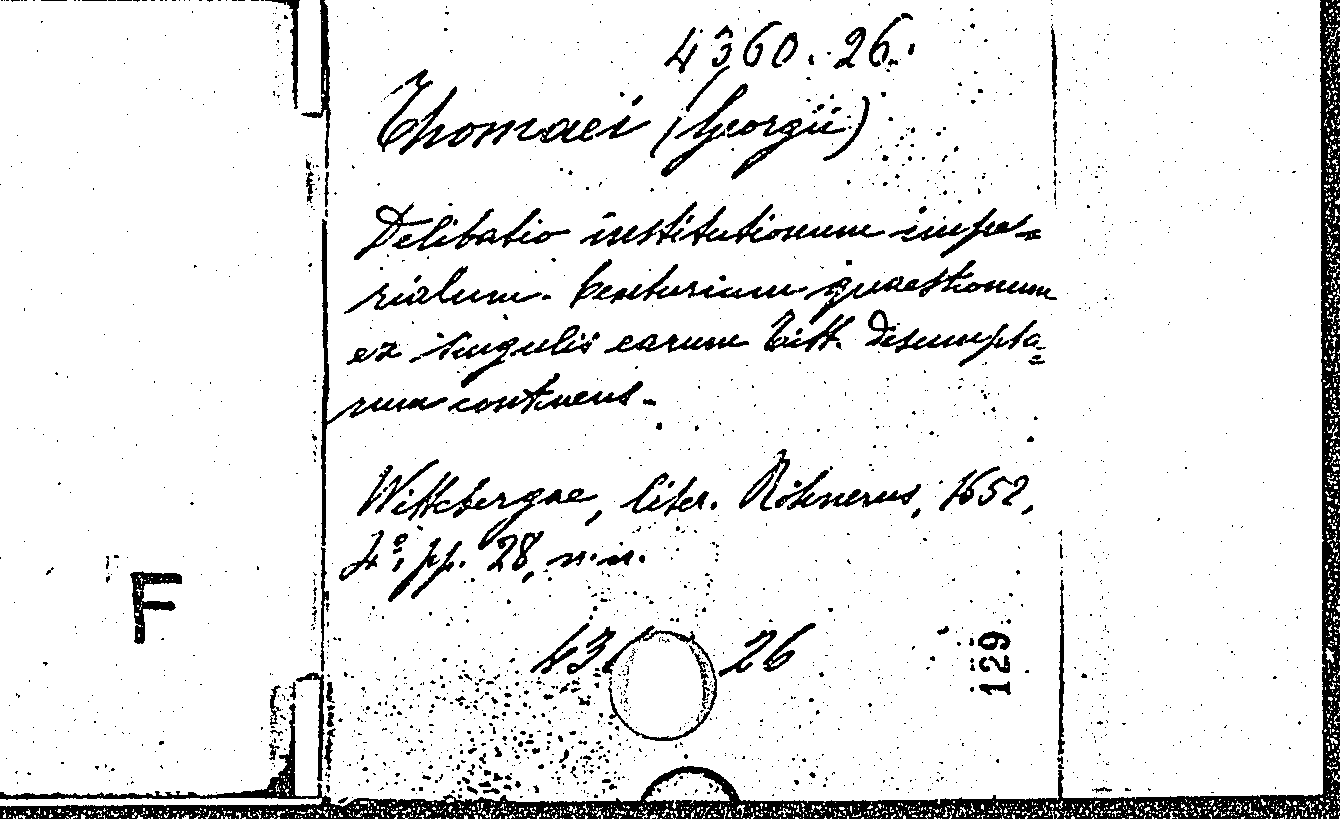 4360.26.
Thomaei (Georgii)
Delibatio institutionum impe-
rialium. Centuriam quaestionum
ex singulis earum Titt. desumpta=
rum continens.
Wittebergae, liter. Röhnerus, 1652,
4°, pp. 28, n.n.
43 26
129
F